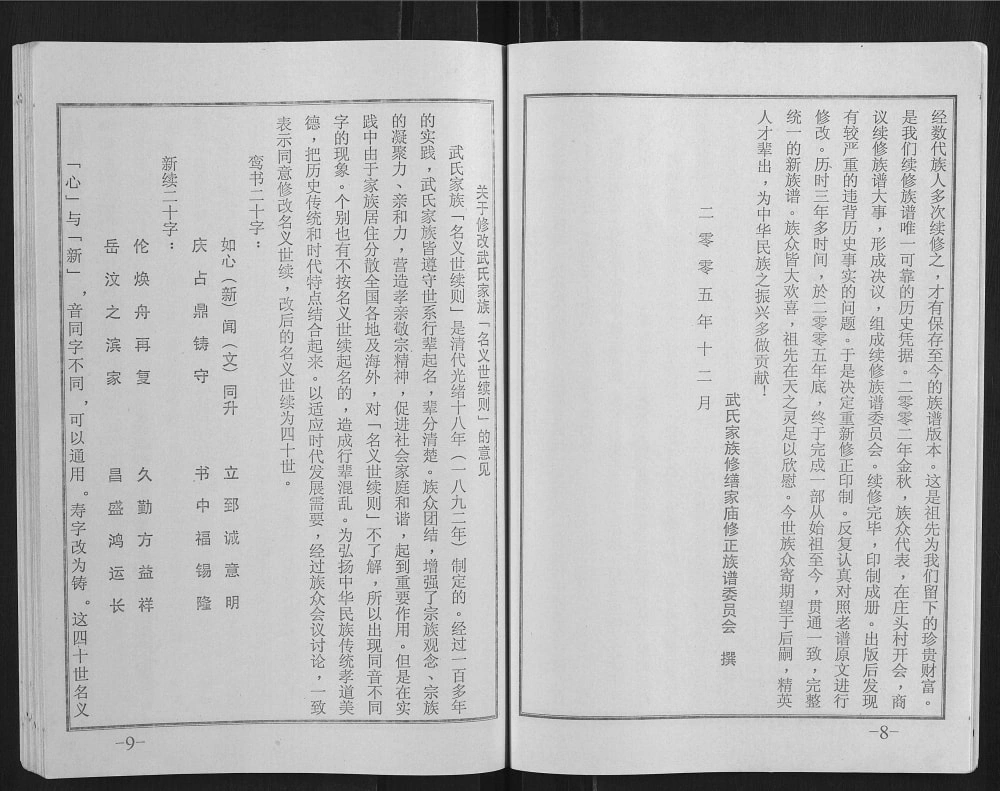 经数代族人多次续修之，才有保存至今的族谱版本。这是祖先为我们留下的珍贵财富。
是我们续修族谱唯一可靠的历史凭据。二零零二年金秋，族众代表，在庄头村开会，商
议续修族谱大事，形成决议，组成续修族谱委员会。续修完毕，印制成册。出版后发现
有较严重的违背历史事实的问题。于是决定重新修正印制。反复认真对照老谱原文进行
修改。历时三年多时间，於二零零五年底，终于完成一部从始祖至今，贯通一致，完整
统一的新族谱。族众皆大欢喜，祖先在天之灵足以欣慰。今世族众寄期望于后嗣，精英
人才辈出，为中华民族之振兴多做贡献！
武氏家族修缮家庙修正族谱委员会 撰
二零零五年十二月
-8-
关于修改武氏家族「名义世续则」的意见
武氏家族「名义世续则」是清代光绪十八年（一八九二年）制定的。经过一百多年
的实践，武氏家族皆遵守世系行辈起名，辈分清楚。族众团结，增强了宗族观念、宗族
的凝聚力、亲和力，营造孝亲敬宗精神，促进社会家庭和谐，起到重要作用。但是在实
践中由于家族居住分散全国各地及海外，对「名义世续则」不了解，所以出现同音不同
字的现象。个别也有不按名义世续起名的，造成行辈混乱。为弘扬中华民族传统孝道美
德，把历史传统和时代特点结合起来。以适应时代发展需要，经过族众会议讨论，一致
表示同意修改名义世续，改后的名义世续为四十世。
鸾书二十字：
如心（新）闻（文）同升 立郅诚意明
庆占鼎铸守 书中福锡隆
新续二十字：
伦焕舟再复 久勤方益祥
岳汶之滨家 昌盛鸿运长
「心」与「新」，音同字不同，可以通用。寿字改为铸。这四十世名义
-9-